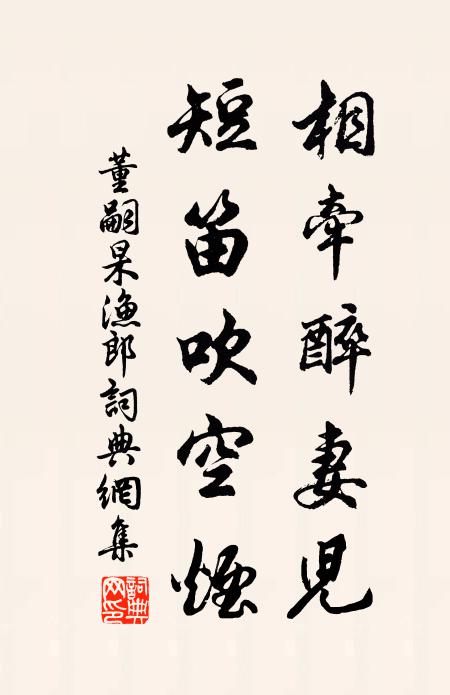 相牽醉妻児
短笛吹空煙
董嗣杲漁郎詞典網集
詞典网印